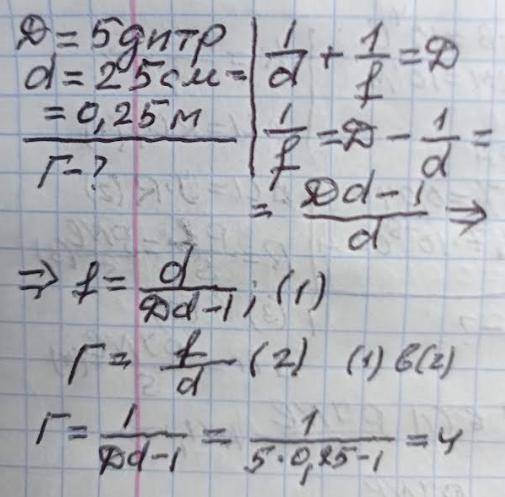 D = 5 дптр
d = 25 см =
= 0,25 м
Г - ?
1/d + 1/f = D
1/f = D - 1/d =
= (Dd - 1)/d ⇒
⇒ f = d/(Dd - 1); (1)
Г = f/d (2) (1) в (2)
Г = 1/(Dd - 1) = 1/(5 · 0,25 - 1) = 4